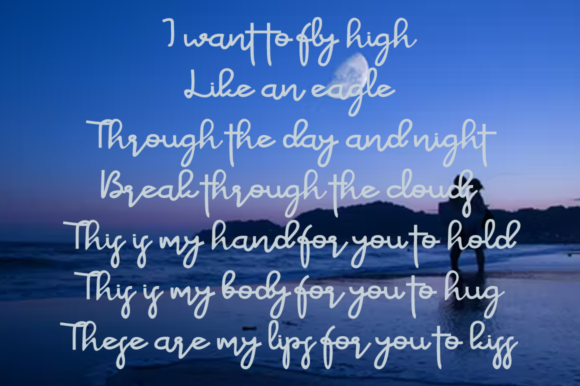 I want to fly high
Like an eagle
Through the day and night
Break through the clouds
This is my hand for you to hold
This is my body for you to hug
These are my lips for you to kiss